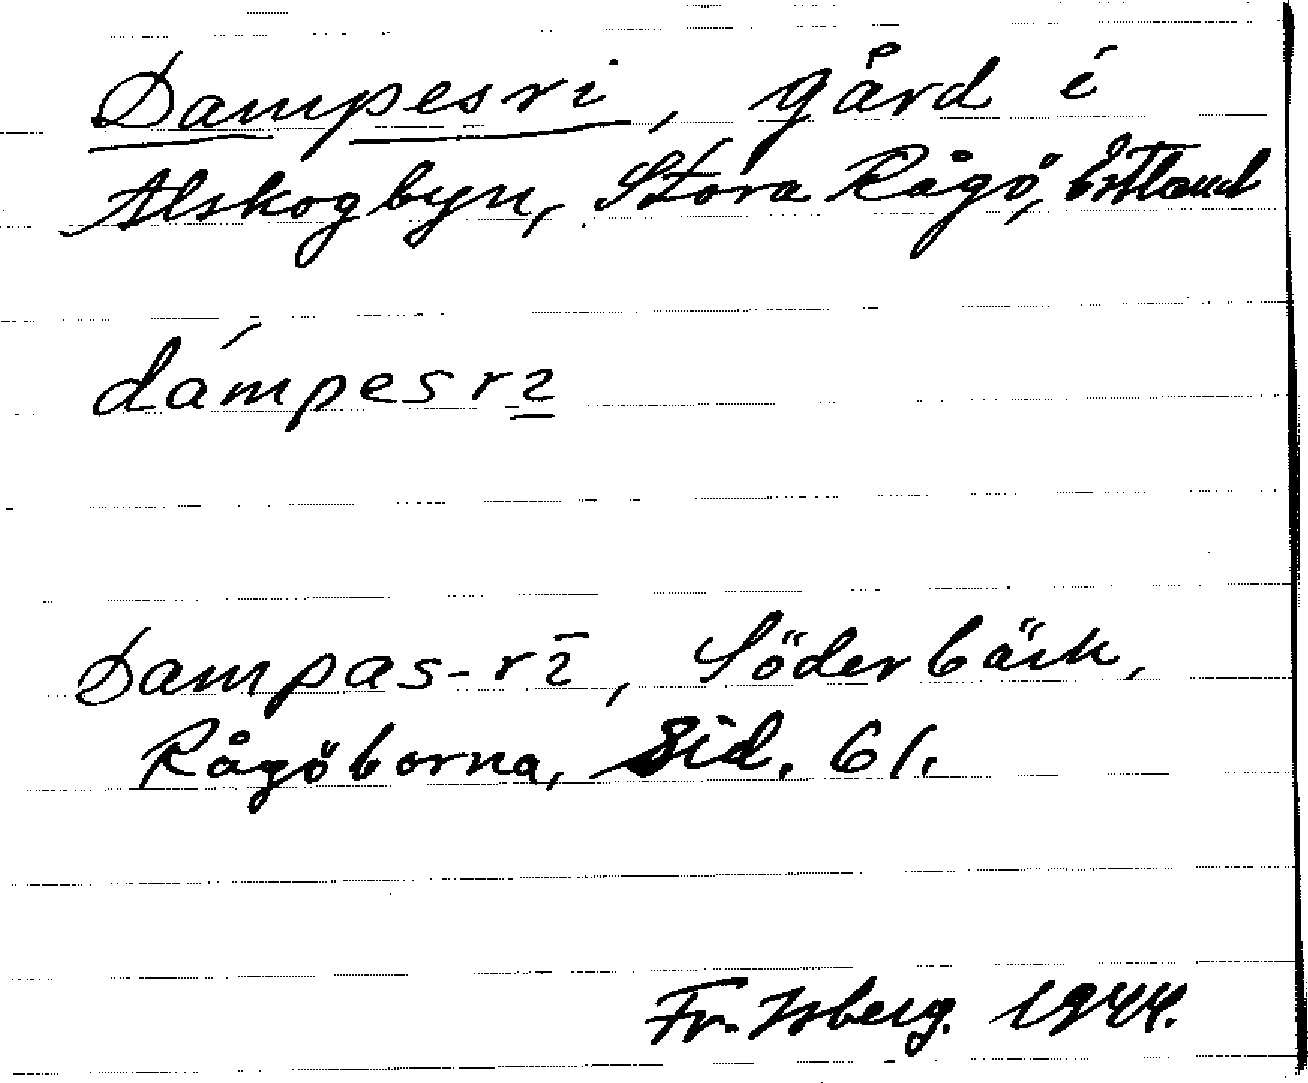 Dampesri, gård i
Alskogbyn, Stora Rågö, Estland
dámpesri̱
Dampas-rī, Söderbäck,
Rågöborna, Sid. 61.
Fr. Isberg. 1944.